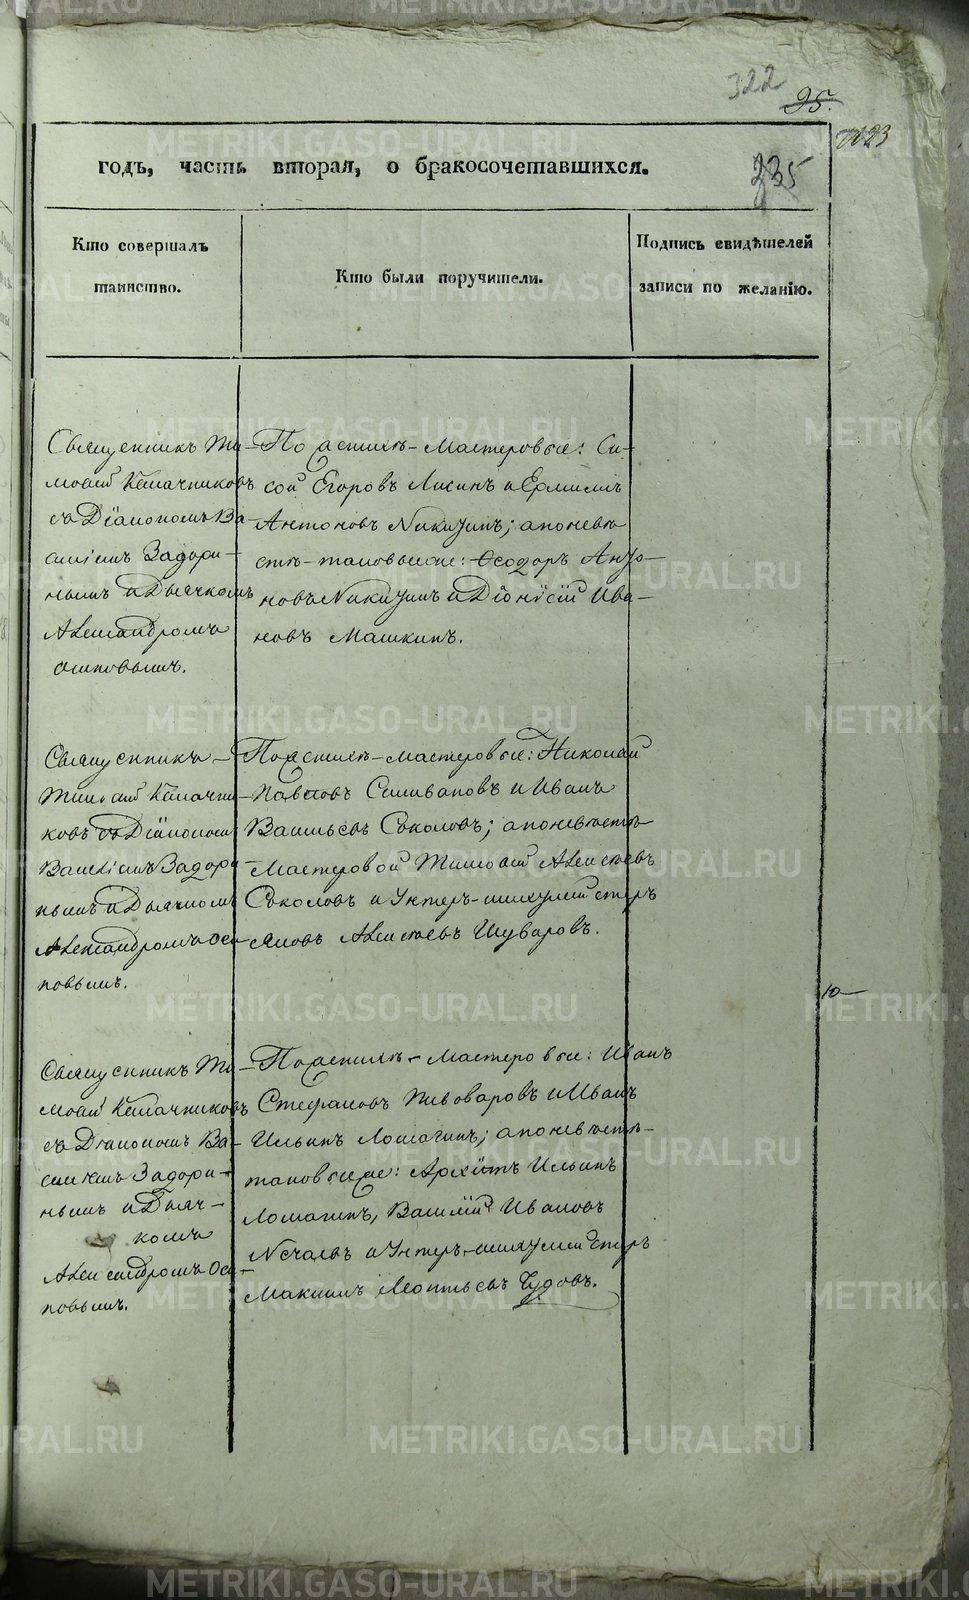 322
25.
235
годъ, часть вторая, о бракосочетавшихся.
Кто совершалъ
таинство.
Кто были поручители.
Подпись свидѣтелей
записи по желанію.
Священникъ Ти-
моѳей Калачниковъ
съ Діакономъ Ва-
силіемъ Задори-
нымъ и Дьячкомъ
Александромъ
Осиповымъ.
По женихѣ - Мастеровые: Си-
сой Егоровъ Лисинъ и Ермилъ
Антоновъ Никитинъ; а по невѣ-
стѣ - таковые же: Ѳеодоръ Анто-
новъ Никитинъ и Діонисій Ива-
новъ Машкинъ.
Священникъ
Тимоѳей Калачни-
ковъ съ Діакономъ
Василіемъ Задори-
нымъ и Дьячкомъ
Александромъ Оси-
повымъ.
По женихѣ - мастеровые: Николай
Павловъ Селивановъ и Иванъ
Васильевъ Соколовъ; а по невѣстѣ
Мастеровой Тимоѳей Алексѣевъ
Соколовъ и Унтеръ-шихтмейстеръ
Алексѣевъ Шуваровъ.
10
Священникъ Ти-
моѳей Калачниковъ
съ Діакономъ Ва-
силіемъ Задори-
нымъ и Дьяч-
комъ
Александромъ Оси-
повымъ.
По женихѣ - Мастеровые: Иванъ
Стефановъ Пивоваровъ и Иванъ
Ильинъ Ломагинъ; а по невѣстѣ -
таковые же: Архипъ Ильинъ
Ломагинъ, Василій Ивановъ
Нечаевъ и Унтеръ-шихтмейстеръ
Максимъ Леонтьевъ Чудовъ.
METRIKI.GASO-URAL.RU